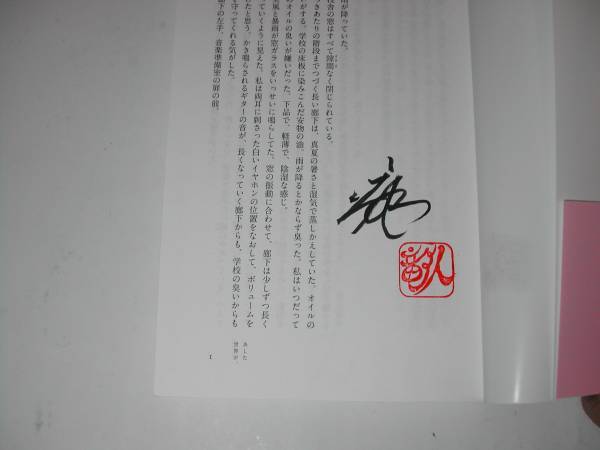 雨が降っていた。
校舎の窓はすべて隙間なく閉じられている。
つきあたりの階段までつづく長い廊下は、真夏の暑さと湿気で蒸しかえしていた。オイルの
がする。学校の床板に染みこんだ安物の油。雨が降るとかならず臭った。私はいつだって
のオイルの臭いが嫌いだった。下品で、軽薄で、陰湿な感じ。
風と暴雨が窓ガラスをいっせいに鳴らしてた。窓の振動に合わせて、廊下は少しずつ長く
っていくように見えた。私は両耳に刺さった白いイヤホンの位置をなおして、ボリュームを
たと思う。かき鳴らされるギターの音が、長くなっていく廊下からも、学校の臭いからも
を守ってくれる気がした。
下の左手、音楽準備室の扉の前。
あした
世界が
1